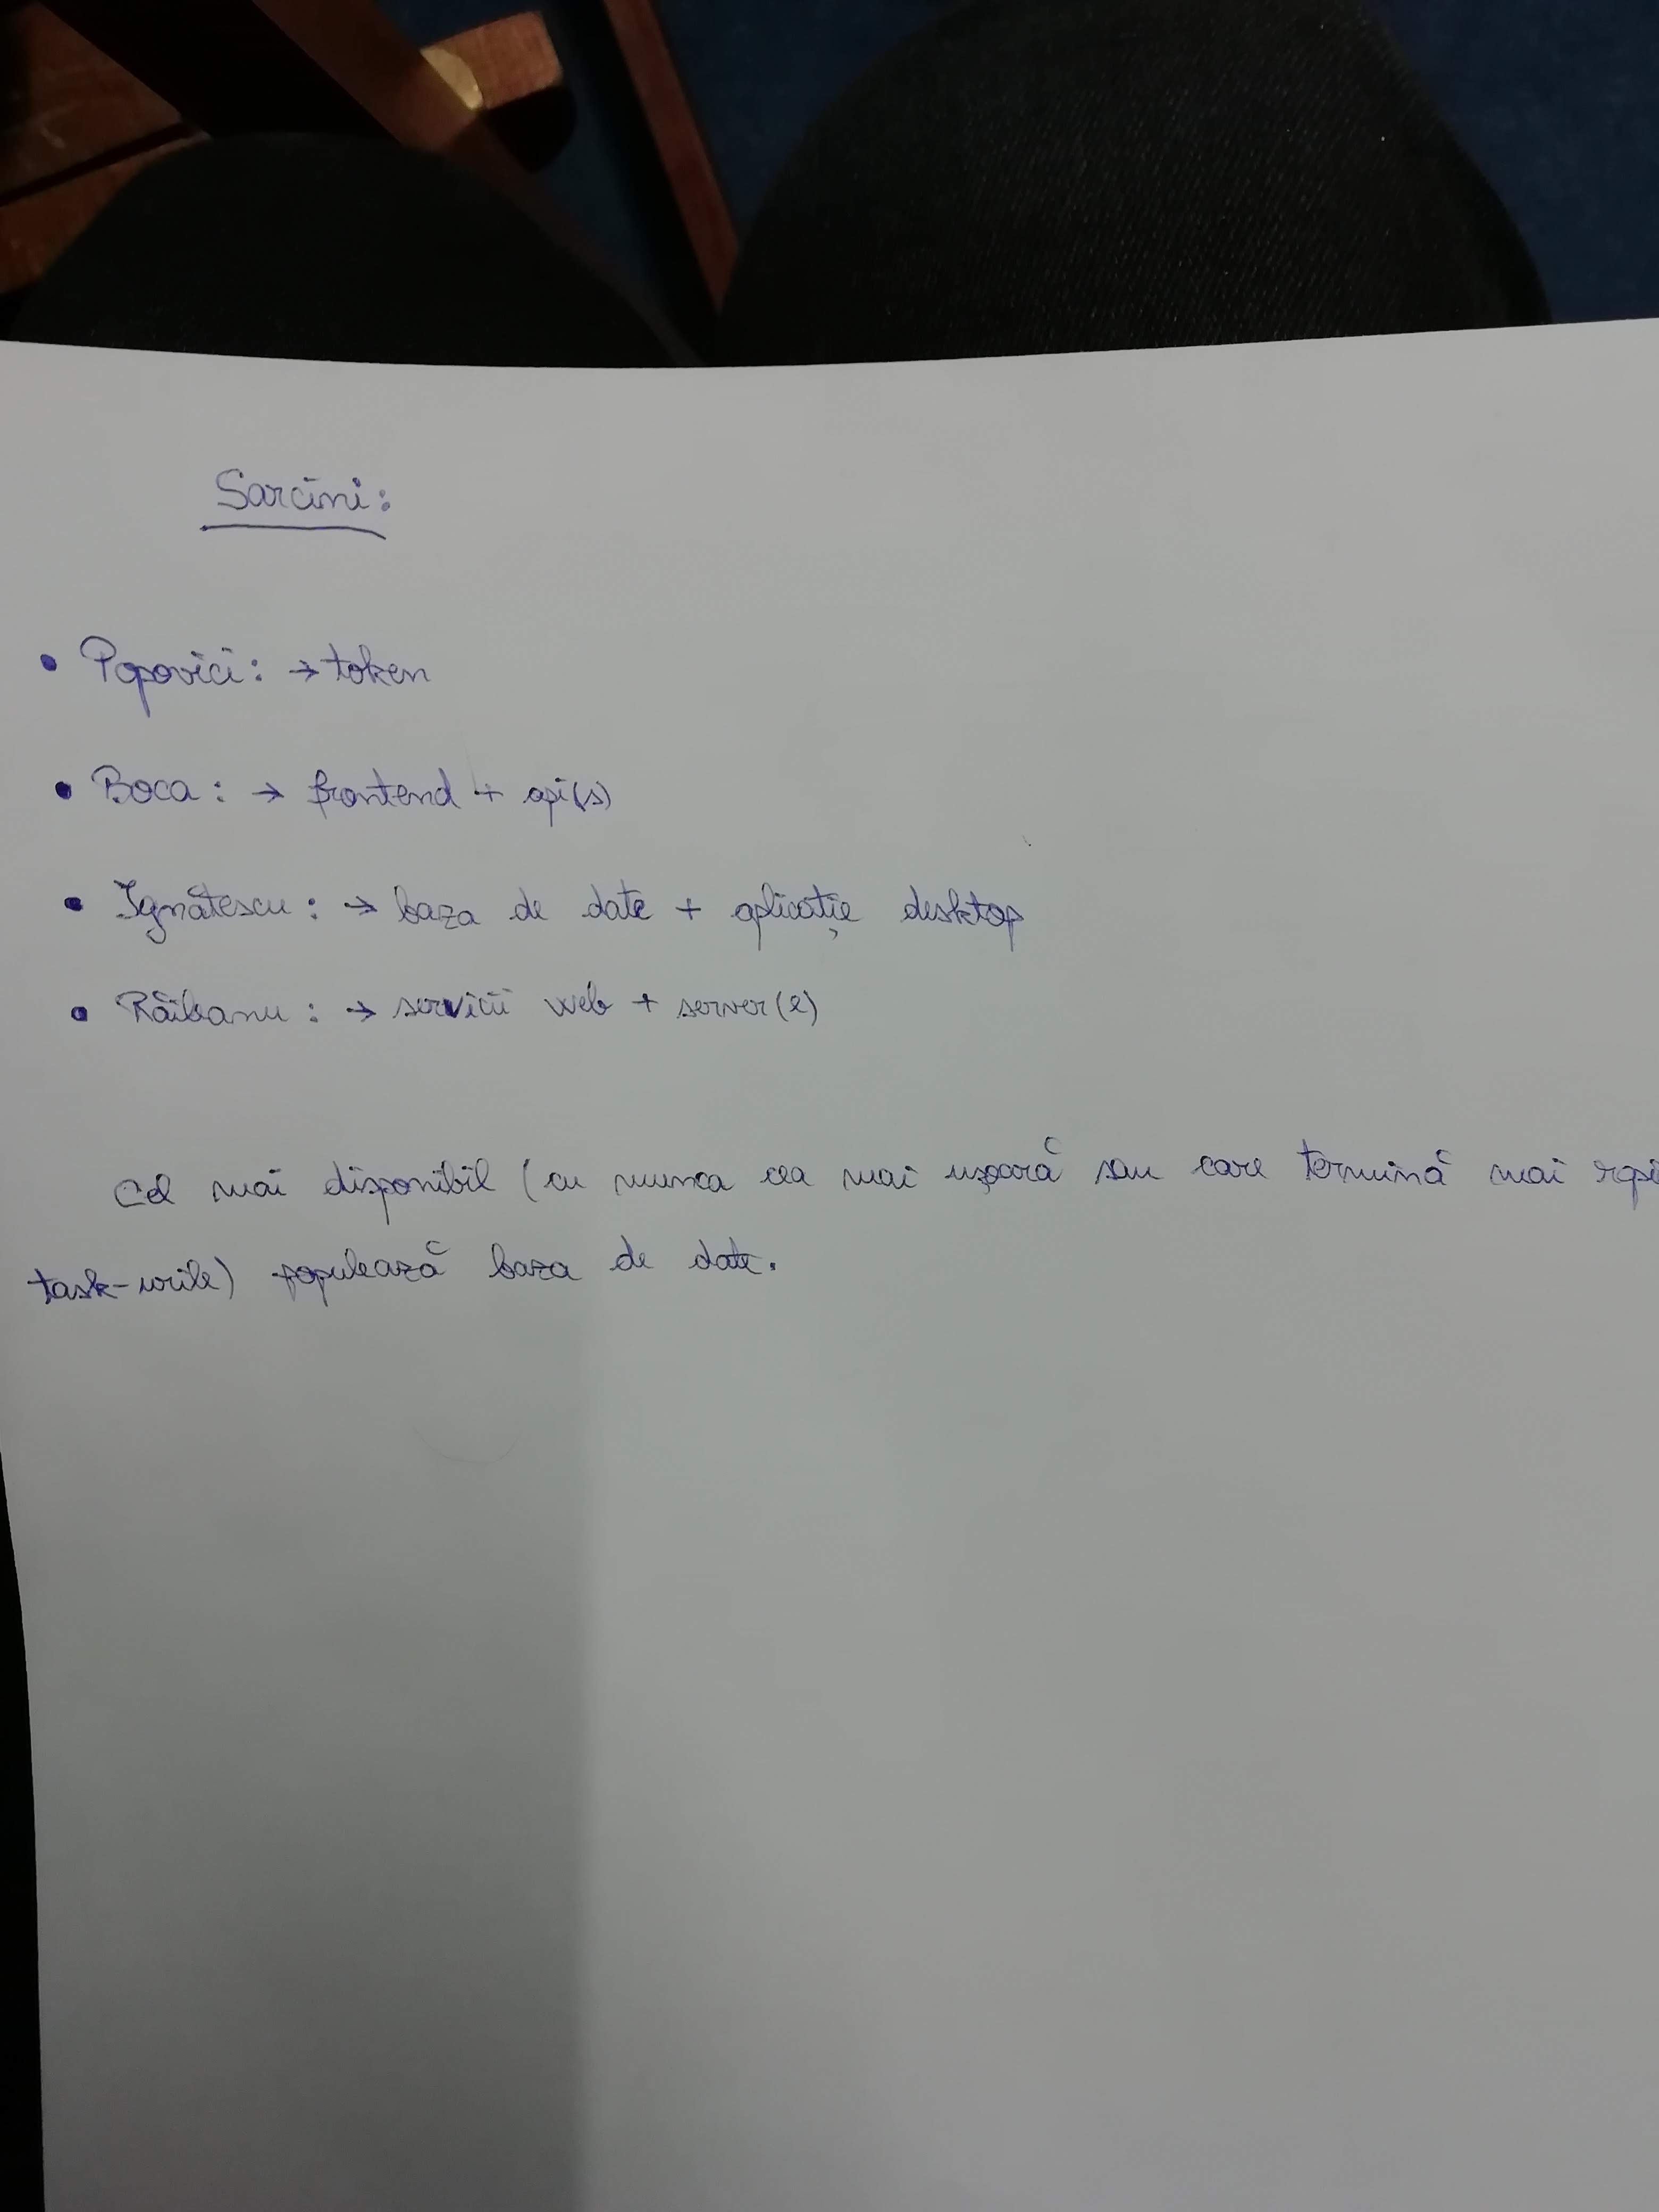 Sarcini:
• Popovici: → token
• Boca: → frontend + api(s)
• Ignătescu: → baza de date + aplicație desktop
• Răileanu: → servicii web + server(e)
Cel mai disponibil (cu munca cea mai ușoară sau care termină mai
task-urile) populează baza de date.